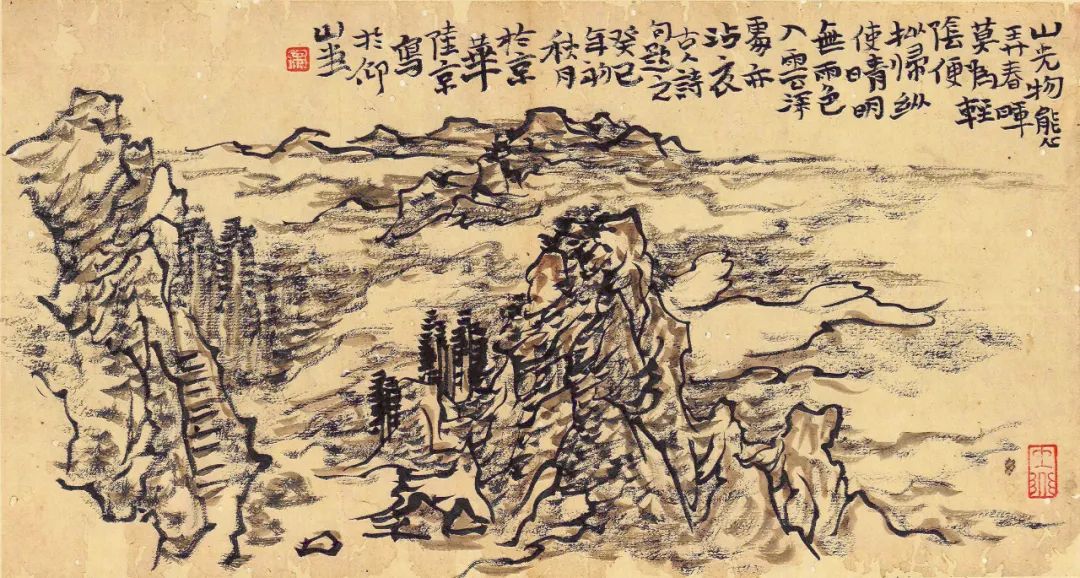 山光物態
弄春暉
莫為輕
陰便
擬歸縱
使晴明
無雨色
入雲深
處亦
沾衣
古人詩
句題之
癸巳
年初
秋月
於京
華
陸京
寫
於仰
山堂